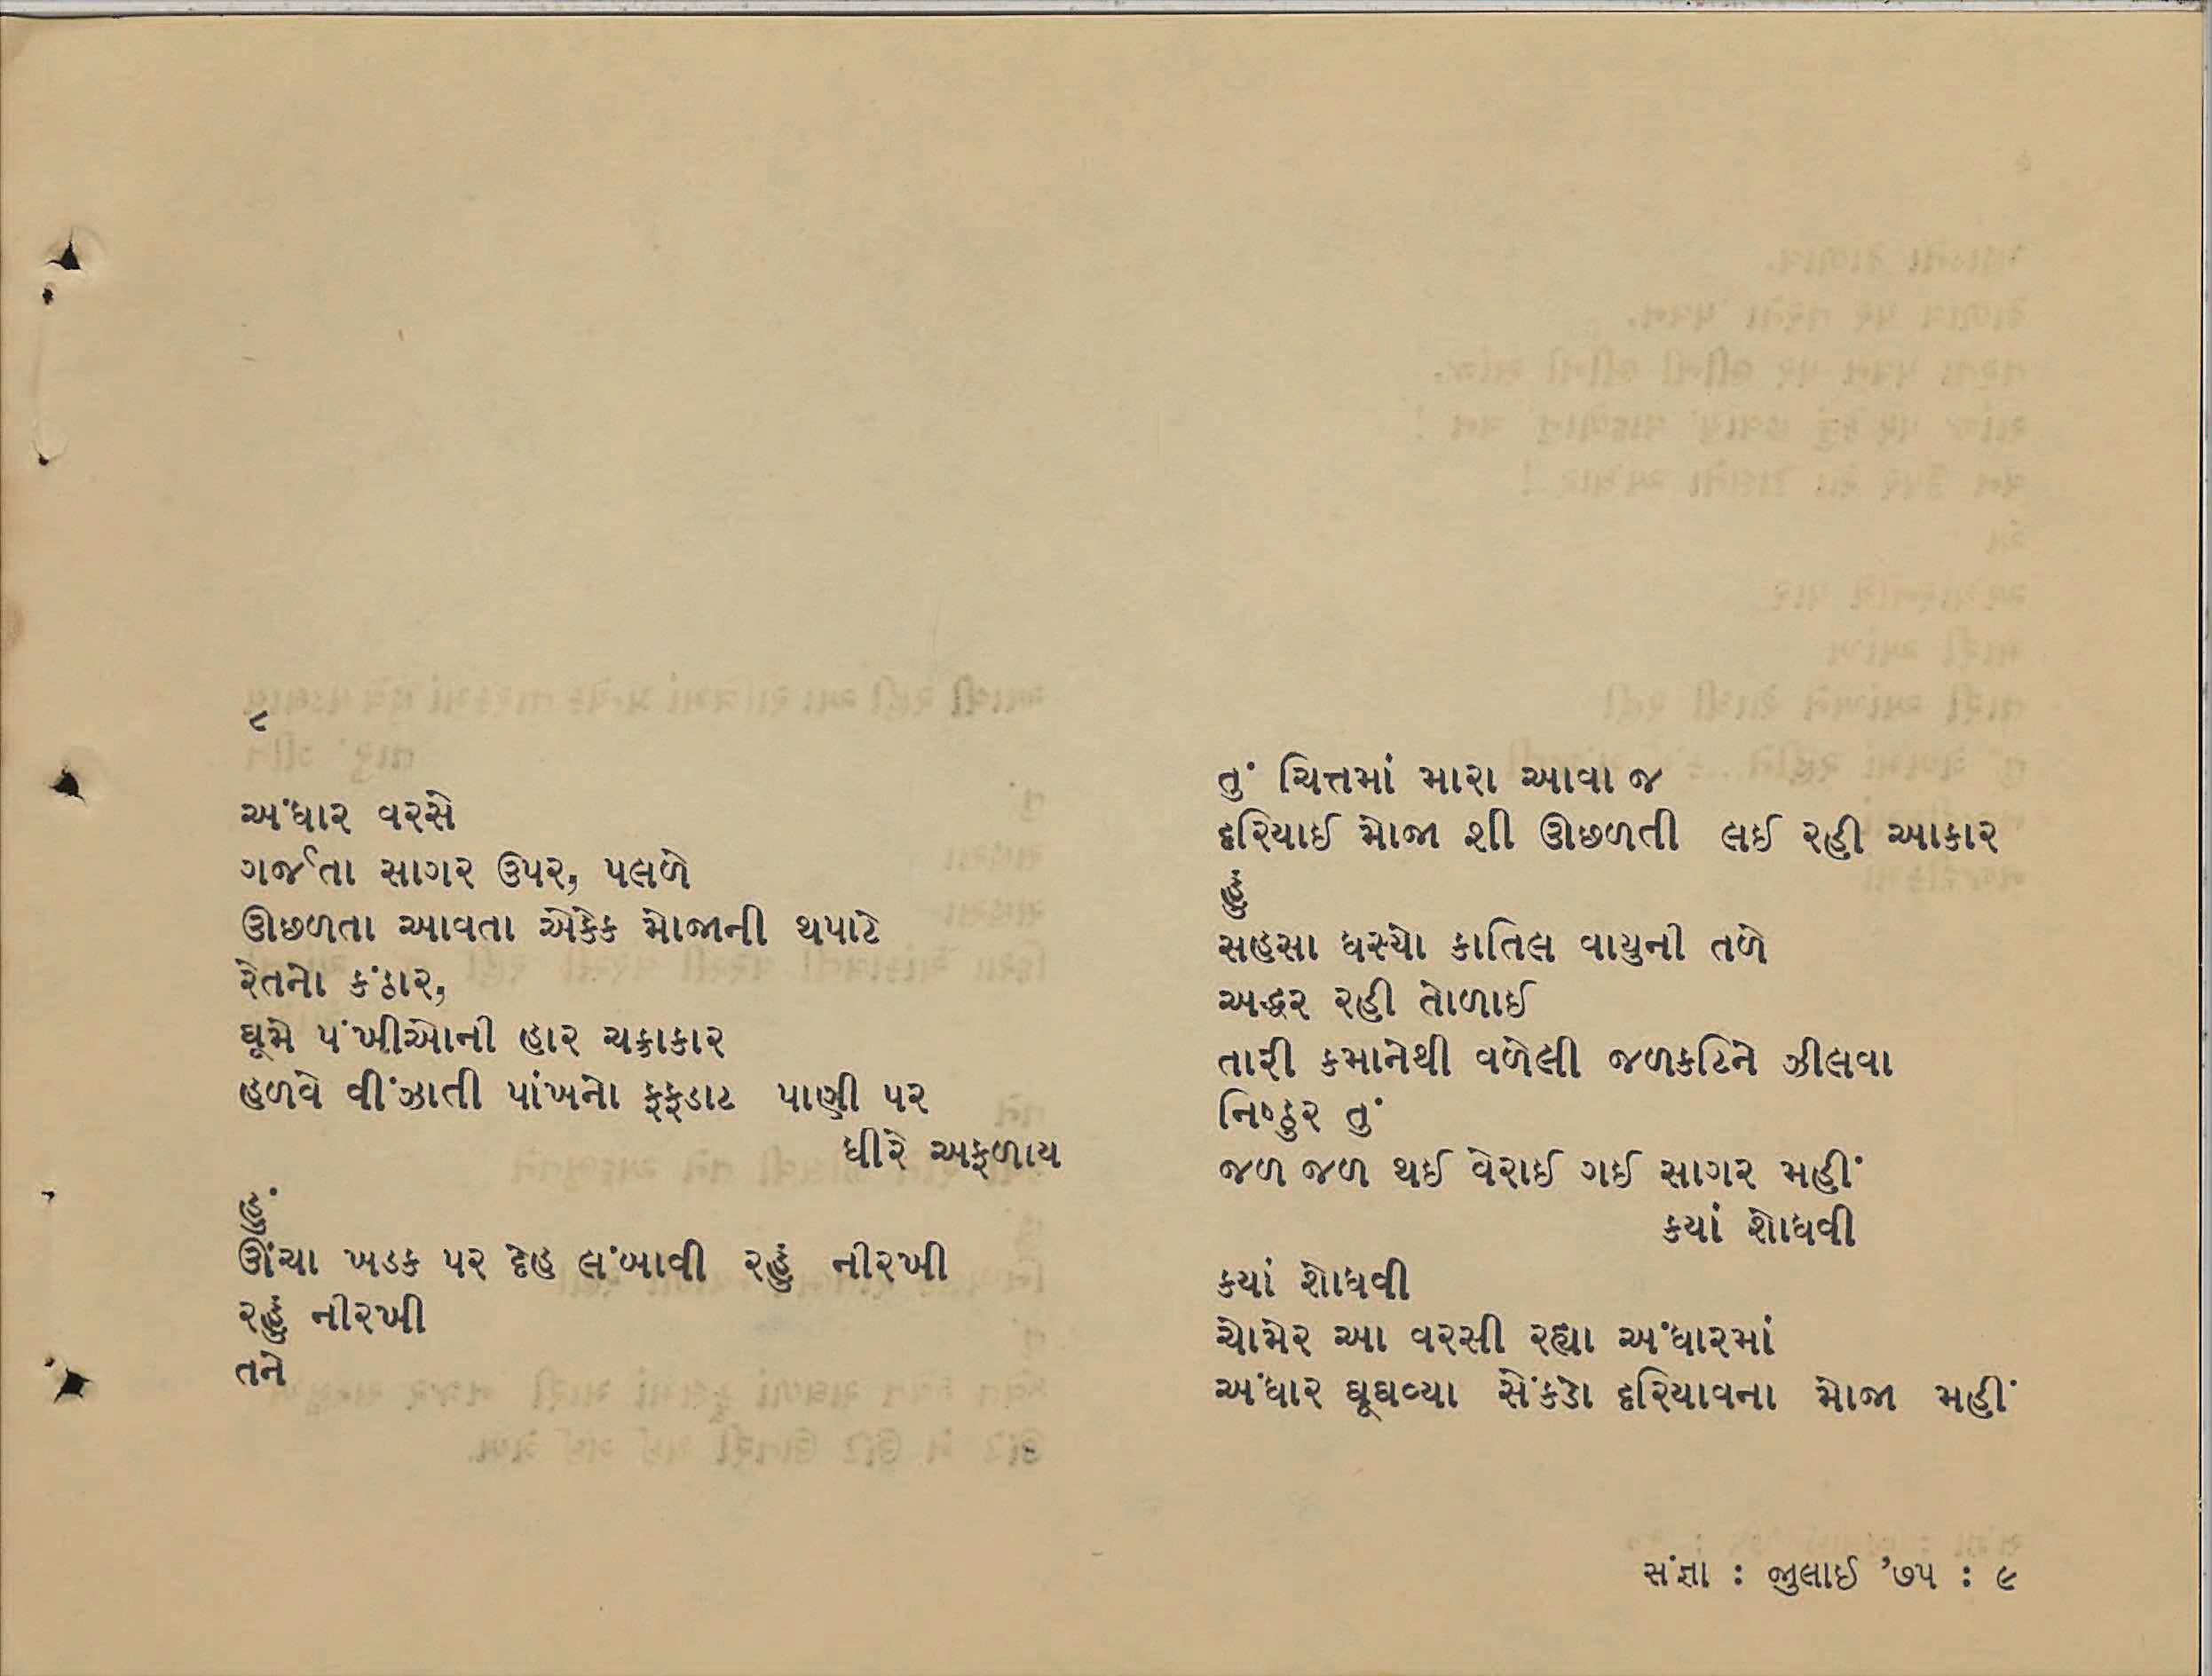 ૮
અંધાર વરસે
ગર્જતા સાગર ઉપર, પલળે
ઊછળતા આવતા એકેક મોજાની થપાટે
રેતનો કંઠાર,
ઘૂમે પંખીઓની હાર ચક્રાકાર
હળવે વીંઝાતી પાંખનો ફફડાટ પાણી પર
ધીરે અફળાય
હું
ઊંચા ખડક પર દેહ લંબાવી રહું નીરખી
રહું નીરખી
તને
તું ચિત્તમાં મારા આવા જ
દરિયાઈ મોજા શી ઊછળતી લઈ રહી આકાર
હું
સહસા ધસ્યો કાતિલ વાયુની તળે
અદ્ધર રહી તોળાઈ
તારી કમાનેથી વળેલી જળકટિને ઝીલવા
નિષ્ઠુર તું
જળ જળ થઈ વેરાઈ ગઈ સાગર મહીં
કયાં શોધવી
કયાં શોધવી
ચોમેર આ વરસી રહ્યા અંધારમાં
અંધાર ઘૂઘવ્યા સેંકડો દરિયાવના મોજા મહીં
સંજ્ઞા : જુલાઈ '૭૫ : ૯